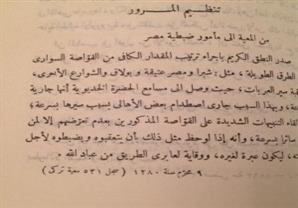 تنظيم المرور
من المعية الى مأمور ضبطية مصر
صدر النطق الكريم باجراء ترتيب المقدار الكافى من القواصة السوارى
الطرق الطويلة ، مثل : شبرا ومصر عتيقة وبولاق والشوارع الأخرى ،
سير العربات ، حيث وصل الى مسامع الحضرة الخديوية أنها جارية
، وبهذا السبب جارى اصطدام بعض الأهالى بسبب سيرها بسرعة ،
القاء التنبيهات الشديدة على القواصة المذكورين بعدم تعرضهم إلا لمن
سائرا بسرعة ، وأنه إذا لوحظ مثل ذلك بأن يتعقبوه ويضبطوه لأجل
، ليكون عبرة لغيره ، ووقاية لعابرى الطريق من عباد الله .
٩ محرم سنة ١٢٨٠ ( سجل ٥٣١ معية تركى )